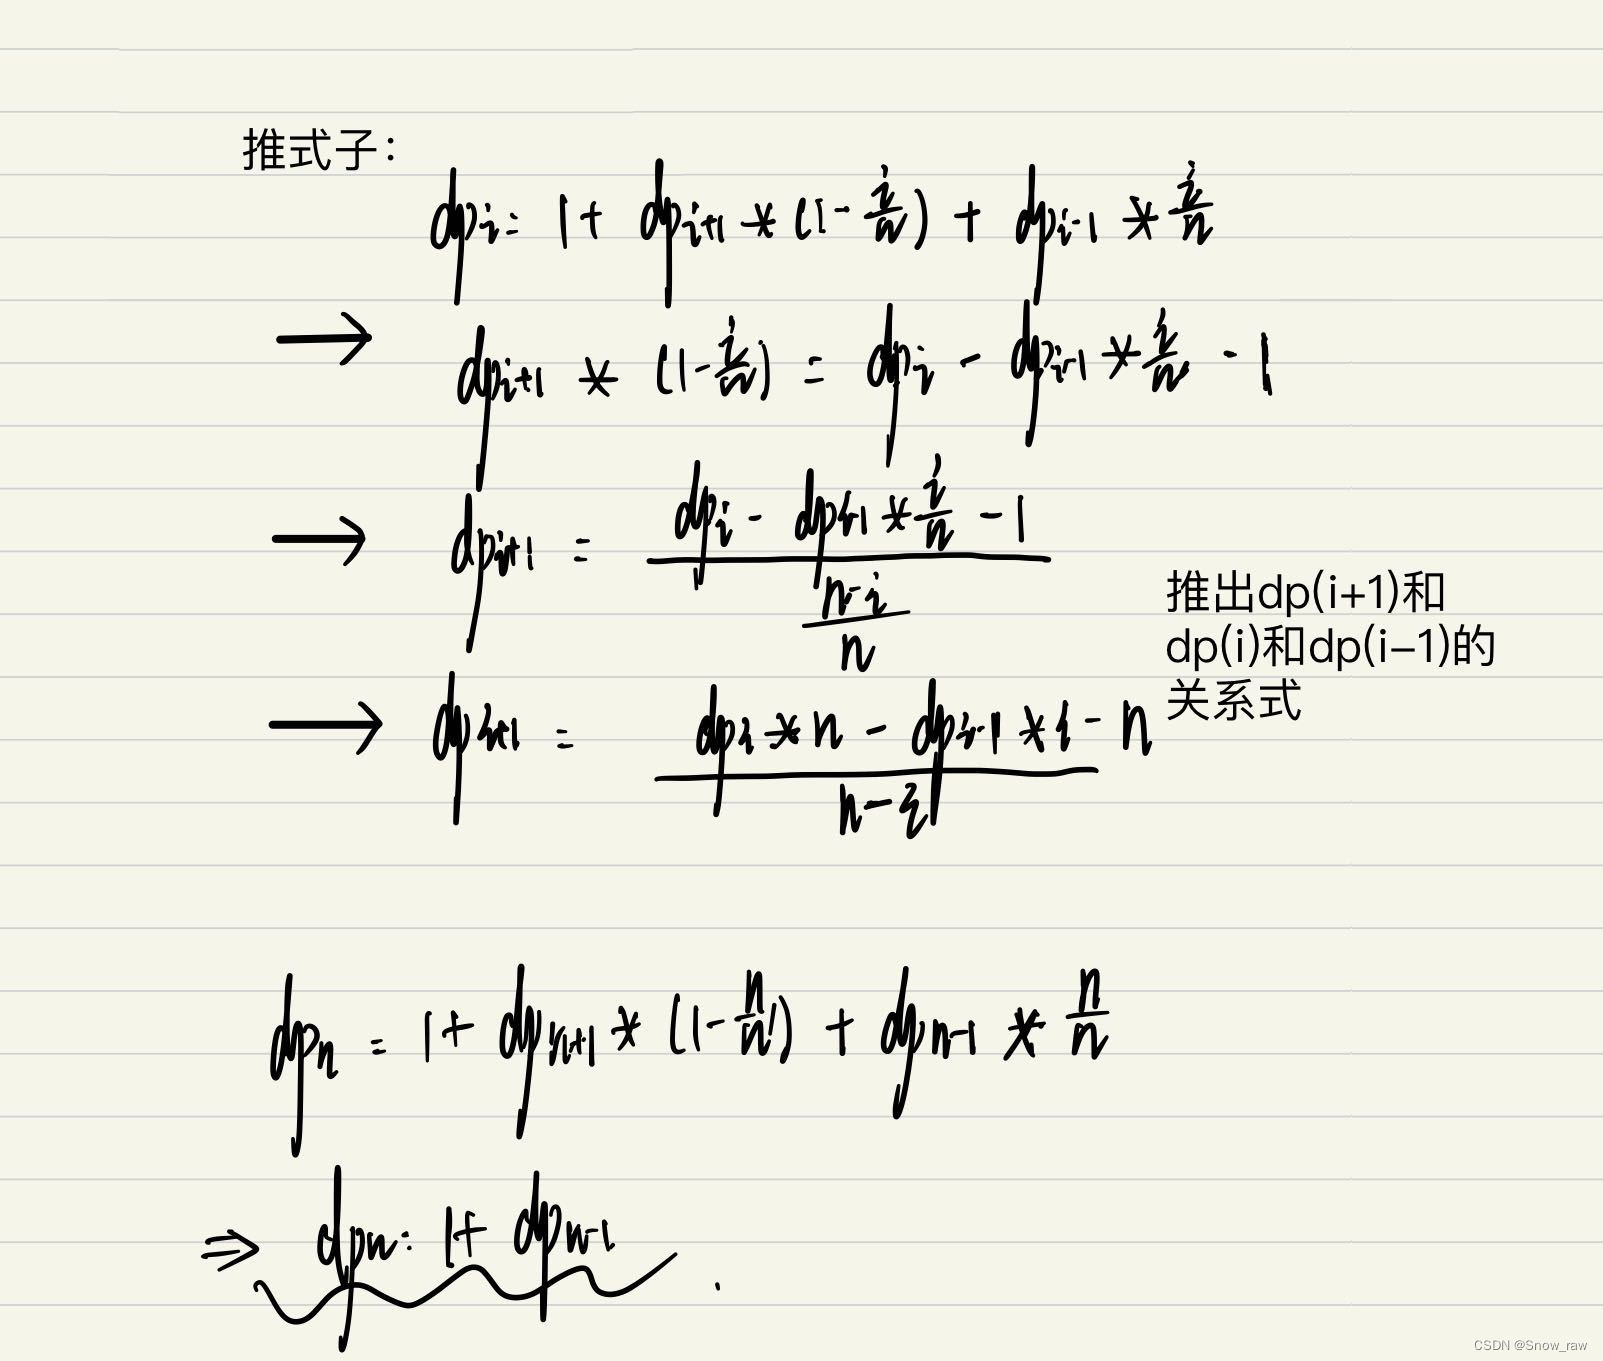 推式子：
dp_i = 1 + dp_{i+1} * (1 - i/n) + dp_{i-1} * i/n
→ dp_{i+1} * (1 - i/n) = dp_i - dp_{i-1} * i/n - 1
→ dp_{i+1} = (dp_i - dp_{i-1} * i/n - 1) / ((n-i)/n)
推出dp(i+1)和
dp(i)和dp(i-1)的
关系式
→ dp_{i+1} = (dp_i * n - dp_{i-1} * i - n) / (n - i)
dp_n = 1 + dp_{n+1} * (1 - n/n) + dp_{n-1} * n/n
⇒ dp_n = 1 + dp_{n-1}
CSDN @Snow_raw